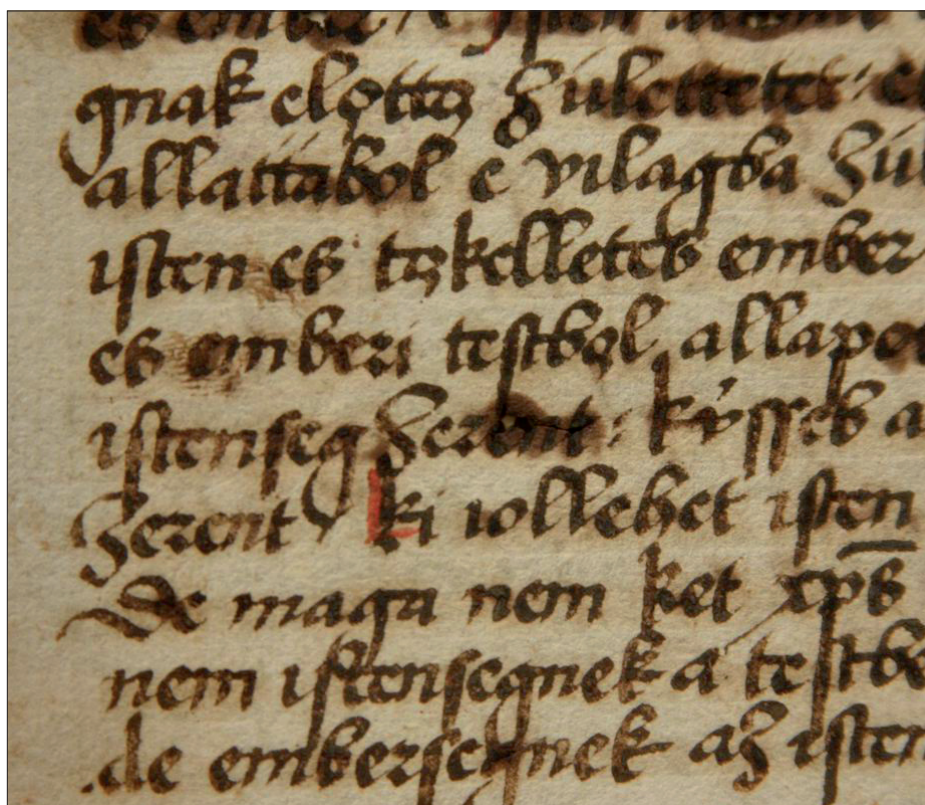 es ember
gnak elǫtte zuletteteт
allattabol e vilagba zul
isten es tǫkelletes ember
es emberi testbǫl allapo
istenseg zerent: kysseb a
zerent Ki iollehet isten
De maga nem ket xps
nem istensegnek a testbe
de embersegnek az isten